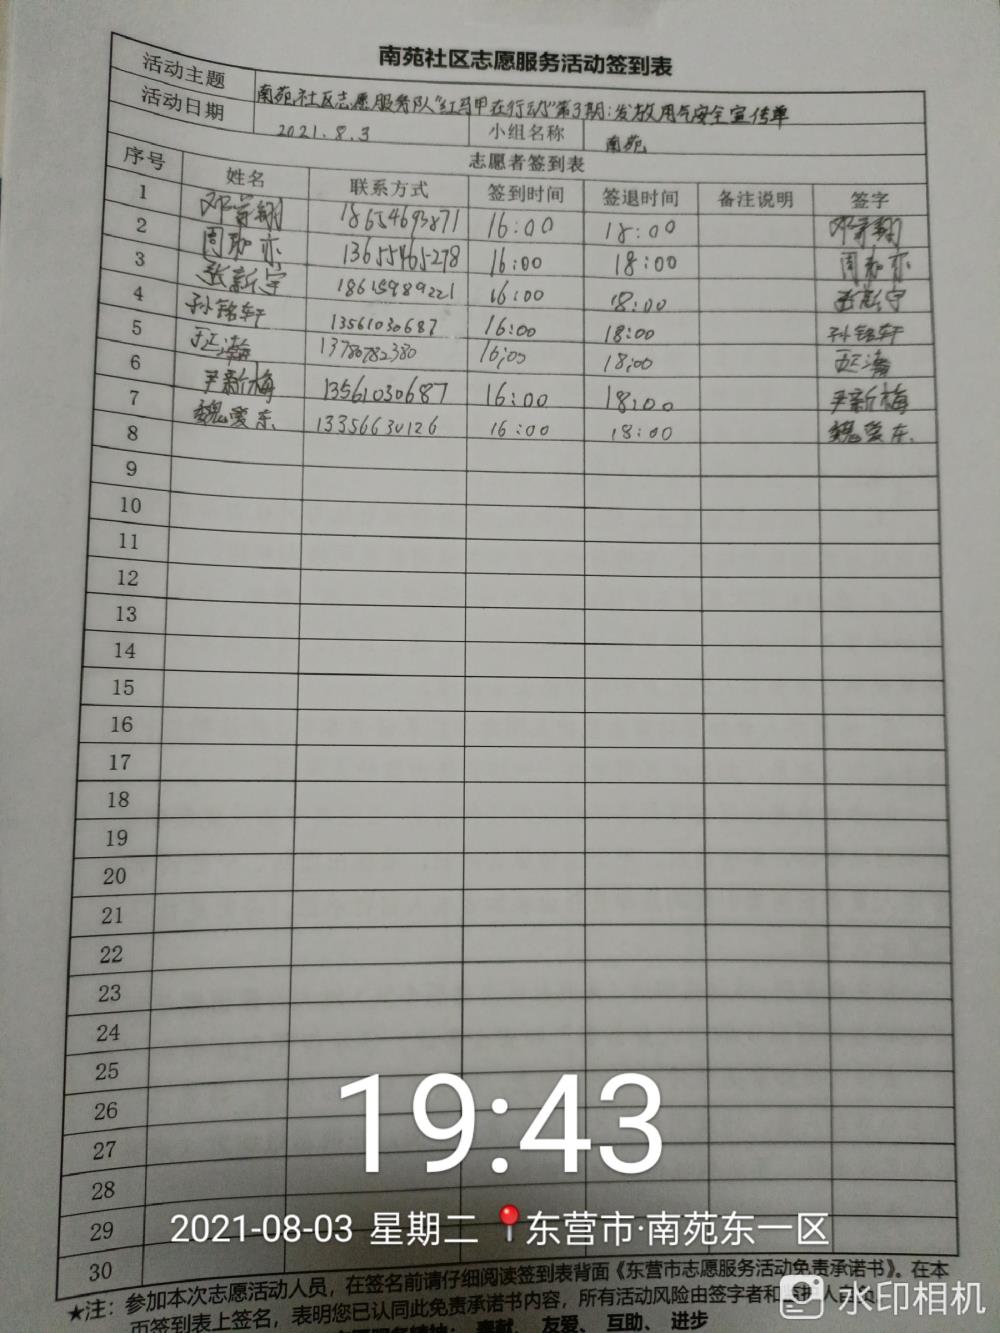 南苑社区志愿服务活动签到表
活动主题 南苑社区志愿服务队"红马甲在行动"第3期:发放用气安全宣传单
活动日期 2021.8.3 小组名称 南苑
志愿者签到表
序号 姓名 联系方式 签到时间 签退时间 备注说明 签字
1 18654693871 16:00 18:00
2 13655465278 16:00 18:00
3 张新宇 18615989221 16:00 18:00 张新宇
4 孙铭轩 13561030687 16:00 18:00 孙铭轩
5 13780782380 16:00 18:00
6 尹新梅 13561030687 16:00 18:00 尹新梅
7 魏爱东 13356630126 16:00 18:00 魏爱东
8
9
10
11
12
13
14
15
16
17
18
19
20
21
22
23
24
25
26
27
28
29
30
19:43
2021-08-03 星期二 东营市·南苑东一区
★注: 参加本次志愿活动人员,在签名前请仔细阅读签到表背面《东营市志愿服务活动免责承诺书》。在本
页签到表上签名,表明您已认同此免责承诺书内容,所有活动风险由签字者和
奉献、 友爱、 互助、 进步
水印相机